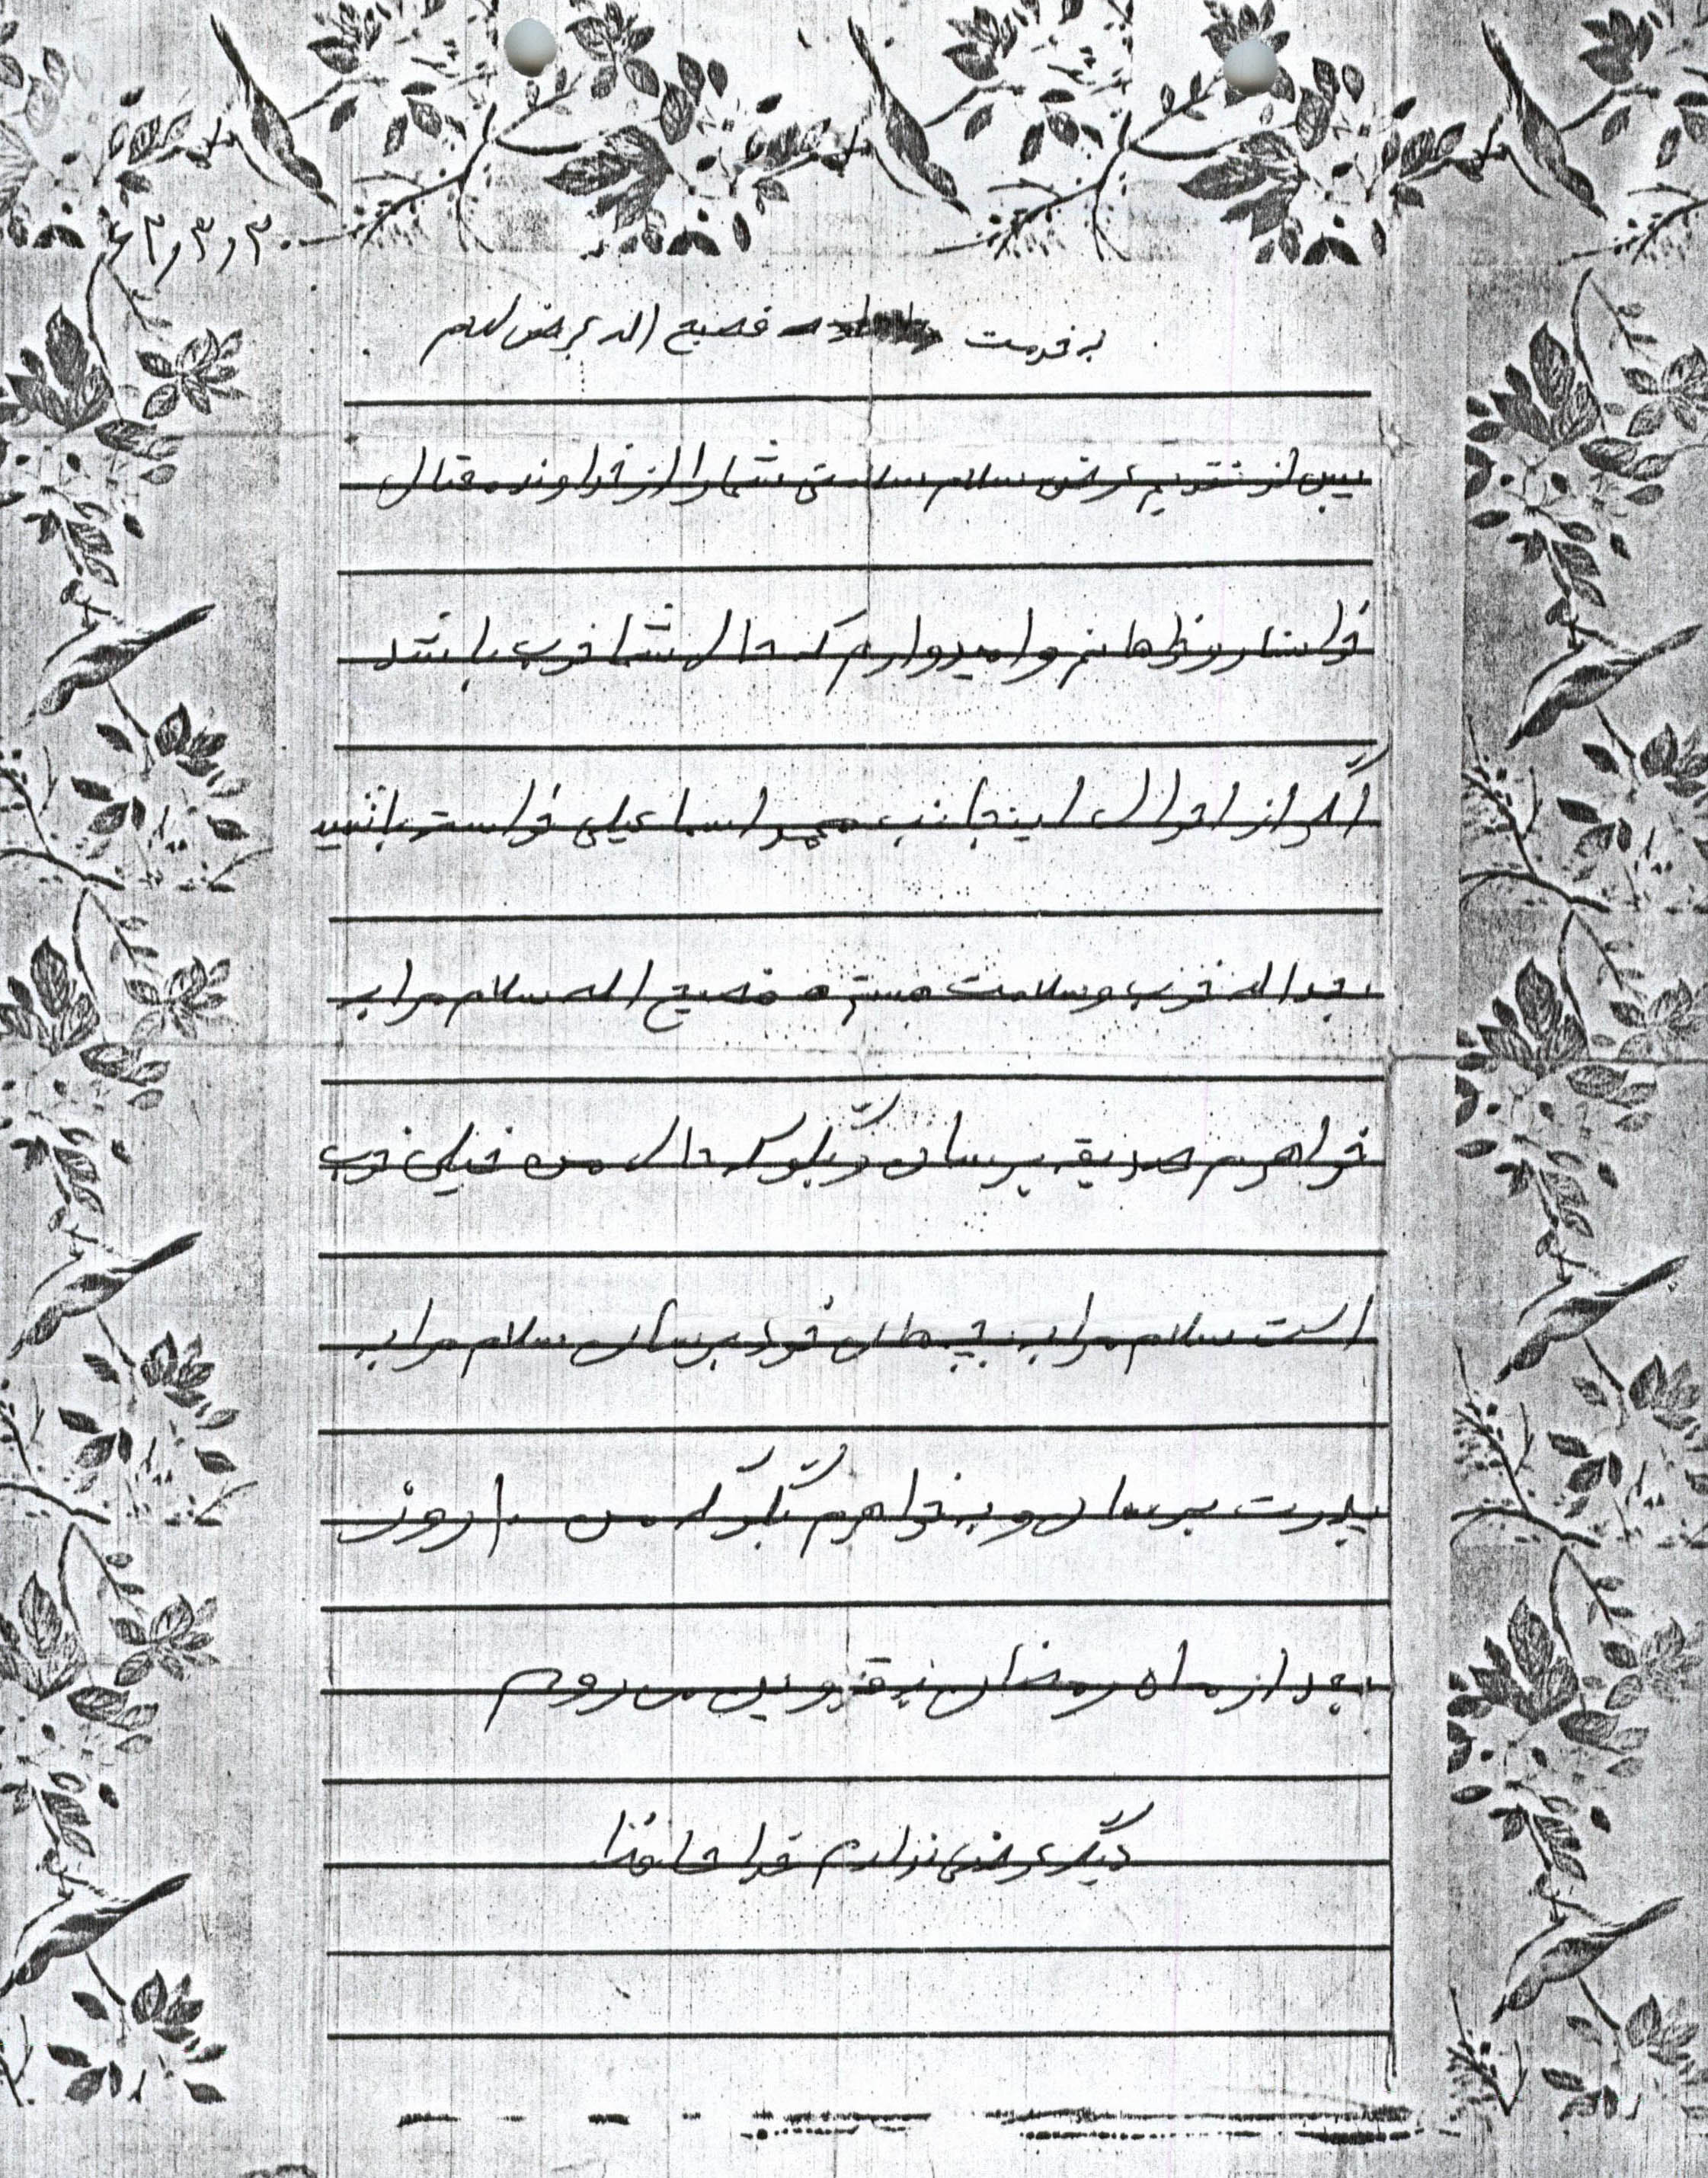 ۶۳٫۳٫۳۰
به خدمت فصیح اله عرض سلام
پس از تقدیم عرض سلام سلامتی شما را از خداوند متعال
خواستار و خواهانم و امیدوارم که حال شما خوب باشد
اگر از احوال اینجانب محمد اسماعیلی خواسته باشید
بحداله خوب و سلامت هستم فصیح اله سلام مرا به
خواهرم صدیقه برسان و بگو که حال من خیلی خوب
است سلام مرا به بچه های خود برسان سلام مرا به
پدرت برسان و به خواهرم بگو که من ۱۰ روز
بعد از ماه رمضان به قزوین می روم
دیگر عرضی ندارم خدا حافظ